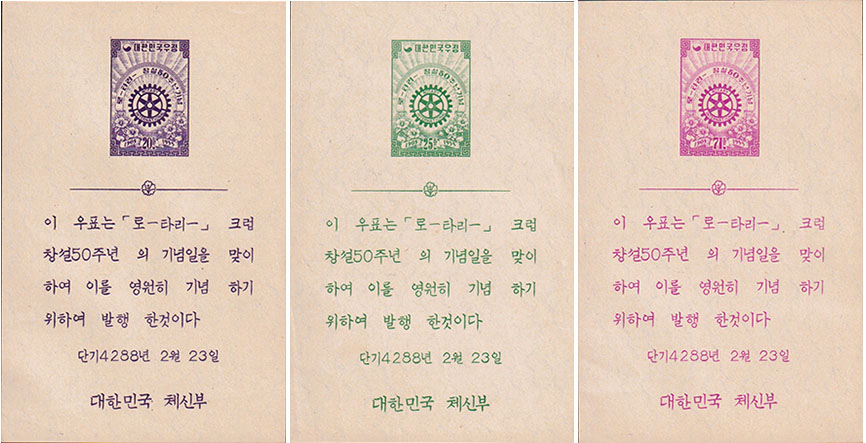 대한민국우정
로ー타리ー 창설50주년기념
1905 20 1955
이 우표는「로ー타리ー」 크럽
창설50주년 의 기념일을 맞이
하여 이를 영원히 기념 하기
위하여 발행 한것이다
단기4288년 2월 23일
대한민국 체신부
대한민국우정
로ー타리ー 창설50주년기념
1905 25 1955
이 우표는「로ー타리ー」 크럽
창설50주년 의 기념일을 맞이
하여 이를 영원히 기념 하기
위하여 발행 한것이다
단기4288년 2월 23일
대한민국 체신부
대한민국우정
로ー타리ー 창설50주년기념
1905 71 1955
이 우표는「로ー타리ー」 크럽
창설50주년 의 기념일을 맞이
하여 이를 영원히 기념 하기
위하여 발행 한것이다
단기4288년 2월 23일
대한민국 체신부